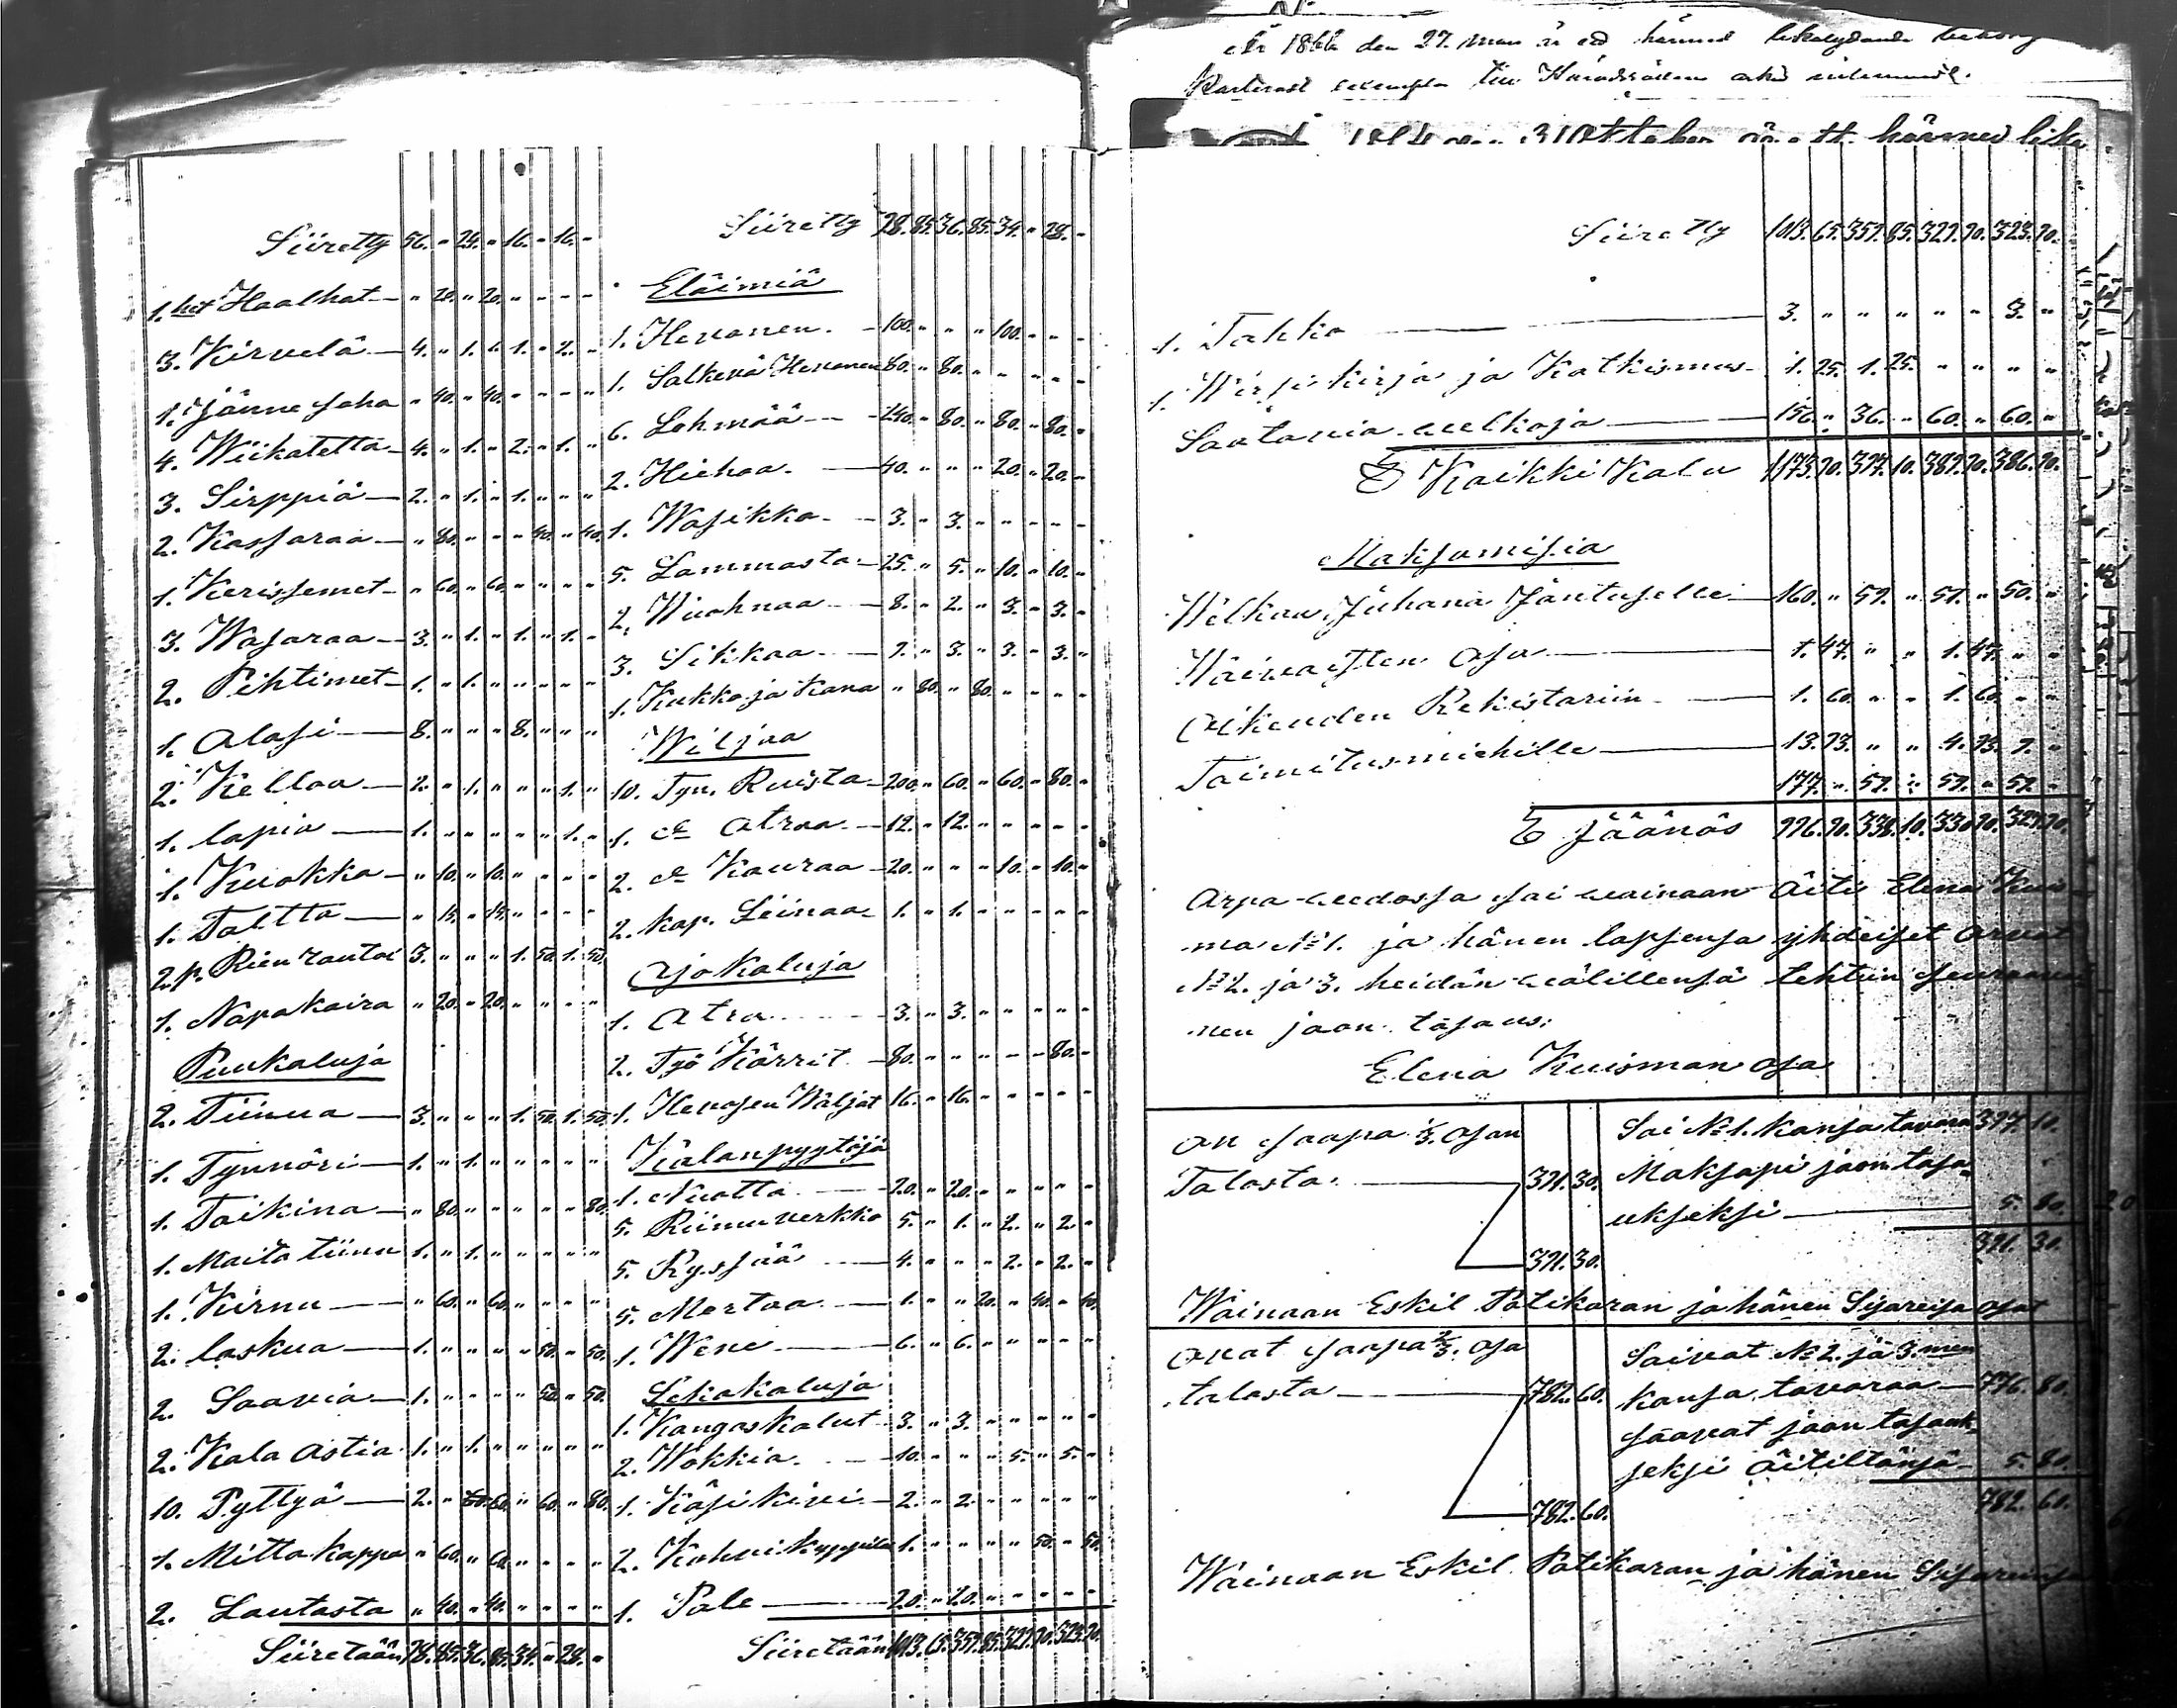 Siiretty 56. " 24. " 16. " 16. "
1. het Haalhat " 20. " 20. " " " "
3. Kirvelä 4. " 1. " 1. " 2. "
1. Jänne saha " 40. " 40. " " " "
4. Wiikatetta 4. " 1. " 2. " 1. "
3. Sirppiä 2. " 1. " 1. " " "
2. Kassaraa " 80. " " " 40. " 40.
1. Kerissemet " 60. " 60. " " " "
3. Wasaraa 3. " 1. " 1. " 1. "
2. Pihtimet 1. " 1. " " " " "
1. Alasi 8. " " " 8. " " "
2. Kelloa 2. " 1. " " " 1. "
1. lapio 1. " " " " " 1. "
1. Kuokka " 10. " 10. " " " "
1. Taltta " 15. " 15. " " " "
2. p. Rien rautoi 3. " " " 1. 50. 1. 50.
1. Napakaira " 20. " 20. " " " "
Puukaluja
2. Tiinua 3. " " " 1. 50. 1. 50.
1. Tynnöri 1. " 1. " " " " "
1. Taikina " 80. " " " " " 80.
1. Maito tiinu 1. " 1. " " " " "
1. Kirnu " 60. " 60. " " " "
2. laskua 1. " " " " 50. " 50.
2. Saavia 1. " " " " 50. " 50.
2. Kala astia 1. " 1. " " " " "
10. Pyttyä 2. " " 60. " 60. " 80.
1. Mitta kappa " 60. " 60. " " " "
2. Lautasta " 40. " 40. " " " "
Siiretään 98. 85. 36. 85. 34. " 28. "
Siiretty 98. 85. 36. 85. 34. " 28. "
Eläimiä
1. Hevonen 100. " " " 100. " " "
1. Salkevä Hevonen 80. " 80. " " " " "
6. Lehmää 240. " 80. " 80. " 80. "
2. Hiehoa 40. " " " 20. " 20. "
1. Wasikka 3. " 3. " " " " "
5. Lammasta 25. " 5. " 10. " 10. "
2. Wuohnaa 8. " 2. " 3. " 3. "
3. Sikkaa 9. " 3. " 3. " 3. "
1. Kukko ja Kana " 80. " 80. " " " "
Wiljaa
10. Tyn. Ruista 200. " 60. " 60. " 80. "
1. d:o Atraa 12. " 12. " " " " "
2. d:o Kauraa 20. " " " 10. " 10. "
2. kap. Liinaa 1. " 1. " " " " "
Ajokaluja
1. Atra 3. " 3. " " " " "
2. Työ Kärrit 80. " " " " " 80. "
1. Hevosen Waljat 16. " 16. " " " " "
Kalanpyytöjä
1. Nuotta 20. " 20. " " " " "
5. Riimuverkko 5. " 1. " 2. " 2. "
5. Rysjää 4. " " " 2. " 2. "
5. Mertaa 1. " " 20. " 40. " 40.
1. Wene 6. " 6. " " " " "
Sekakaluja
1. Kangaskalut 3. " 3. " " " " "
2. Wokkia 10. " " " 5. " 5. "
1. Käsi kivi 2. " 2. " " " " "
2. Kahvikyppiä 1. " " " " 50. " 50.
1. Pale 20. " 20. " " " " "
Siiretään 1013. 65. 359. 85. 329. 90. 323. 90.
År 1866 den 27. man är ed härmed likalydande
exemplar till Häradsrätten
31 Oktober är ett härmed lika
Siiretty 1013. 65. 359. 85. 329. 90. 323. 90.
1. Tahko 3. " " " " " 3. "
1. Wirsikirja ja Katkismus 1. 25. 1. 25. " " " "
Saatavia velkoja 156. " 36. " 60. " 60. "
S Kaikki Kalu 1173. 90. 397. 10. 389. 90. 386. 90.
Maksomisia
Welkaa Juhana Jäntyselle 160. " 59. " 51. " 50. "
Waivaisten osa 1. 47. " " 1. 47. " "
Oikeuden Rekistariin 1. 60. " " 1. 60. " "
Toimitusmiehille 13. 93. " " 4. 93. 9. "
177. " 59. " 59. " 59. "
S Jäänös 996. 90. 338. 10. 330. 90. 327. 90.
Arpa-vedossa sai vainaan äiti Elena Kuis-
ma N:o 1. ja hänen lapsensa yhdeiset arvat
N:o 2. ja 3. heidän välillensä tehtiin seuraava
nen jaon tasaus:
Elena Kuisman osa
on saapa 1/3. osan
Talosta 391. 30.
391. 30.
Sai N:o 1. kansa tavara 397. 10.
Maksapi jaon tasa-
ukseksi 5. 80.
391. 30.
Wainaan Eskil Patikaran ja hänen Sisareisa osat
ovat saapa 2/3. osa
talosta 782. 60.
782. 60.
Saivat N:o 2. ja 3. men
kansa tavaraa 776. 80.
saavat jaon tasauk-
seksi äitiltänsä 5. 80.
782. 60.
Wainaan Eskil Patikaran ja hänen